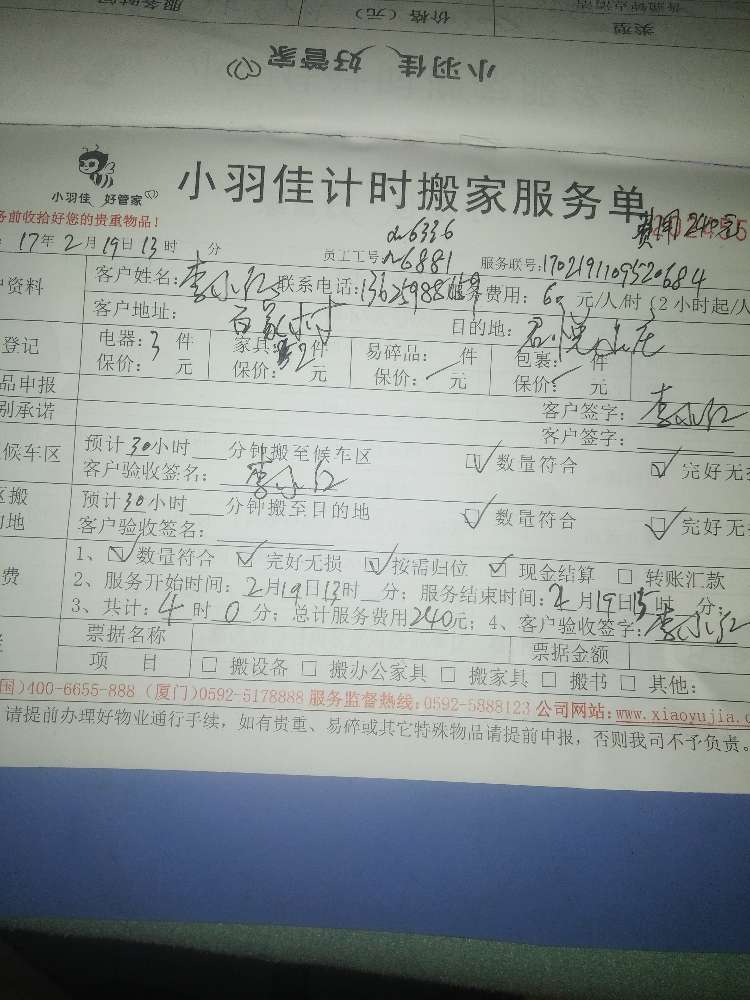 服务时间 价格（元） 类型
小羽佳 好管家
小羽佳 好管家
小羽佳计时搬家服务单
费用240元
务前收拾好您的贵重物品！
17年2月19日13时 分 员工工号 6336 6881 服务联号：1702191109520684
户资料 客户姓名：李小红 联系电话： 服务费用：60元/人/时（2小时起/人
客户地址：百家村 目的地：君悦山庄
登记 电器：3件 家具：2件 易碎品： 件 包裹： 件
保价： 元 保价： 元 保价： 元 保价： 元
品申报 客户签字：李小红
别承诺 客户签字：
候车区 预计30小时 分钟搬至候车区 数量符合 完好无损
客户验收签名：李小红
区搬 预计30小时 分钟搬至目的地 数量符合 完好无
的地 客户验收签名：
费 1、 数量符合 完好无损 按需归位 现金结算 转账汇款
2、服务开始时间：2月19日13时 分；服务结束时间：2月19日15时 分；
3、共计：4时0分；总计服务费用240元；4、客户验收签字：李小红
票据名称 票据金额
项 目 搬设备 搬办公家具 搬家具 搬书 其他：
国)400-6655-888 (厦门)0592-5178888 服务监督热线：0592-5888123 公司网站：www.xiaoyujia.c
请提前办理好物业通行手续，如有贵重、易碎或其它特殊物品请提前申报，否则我司不予负责。